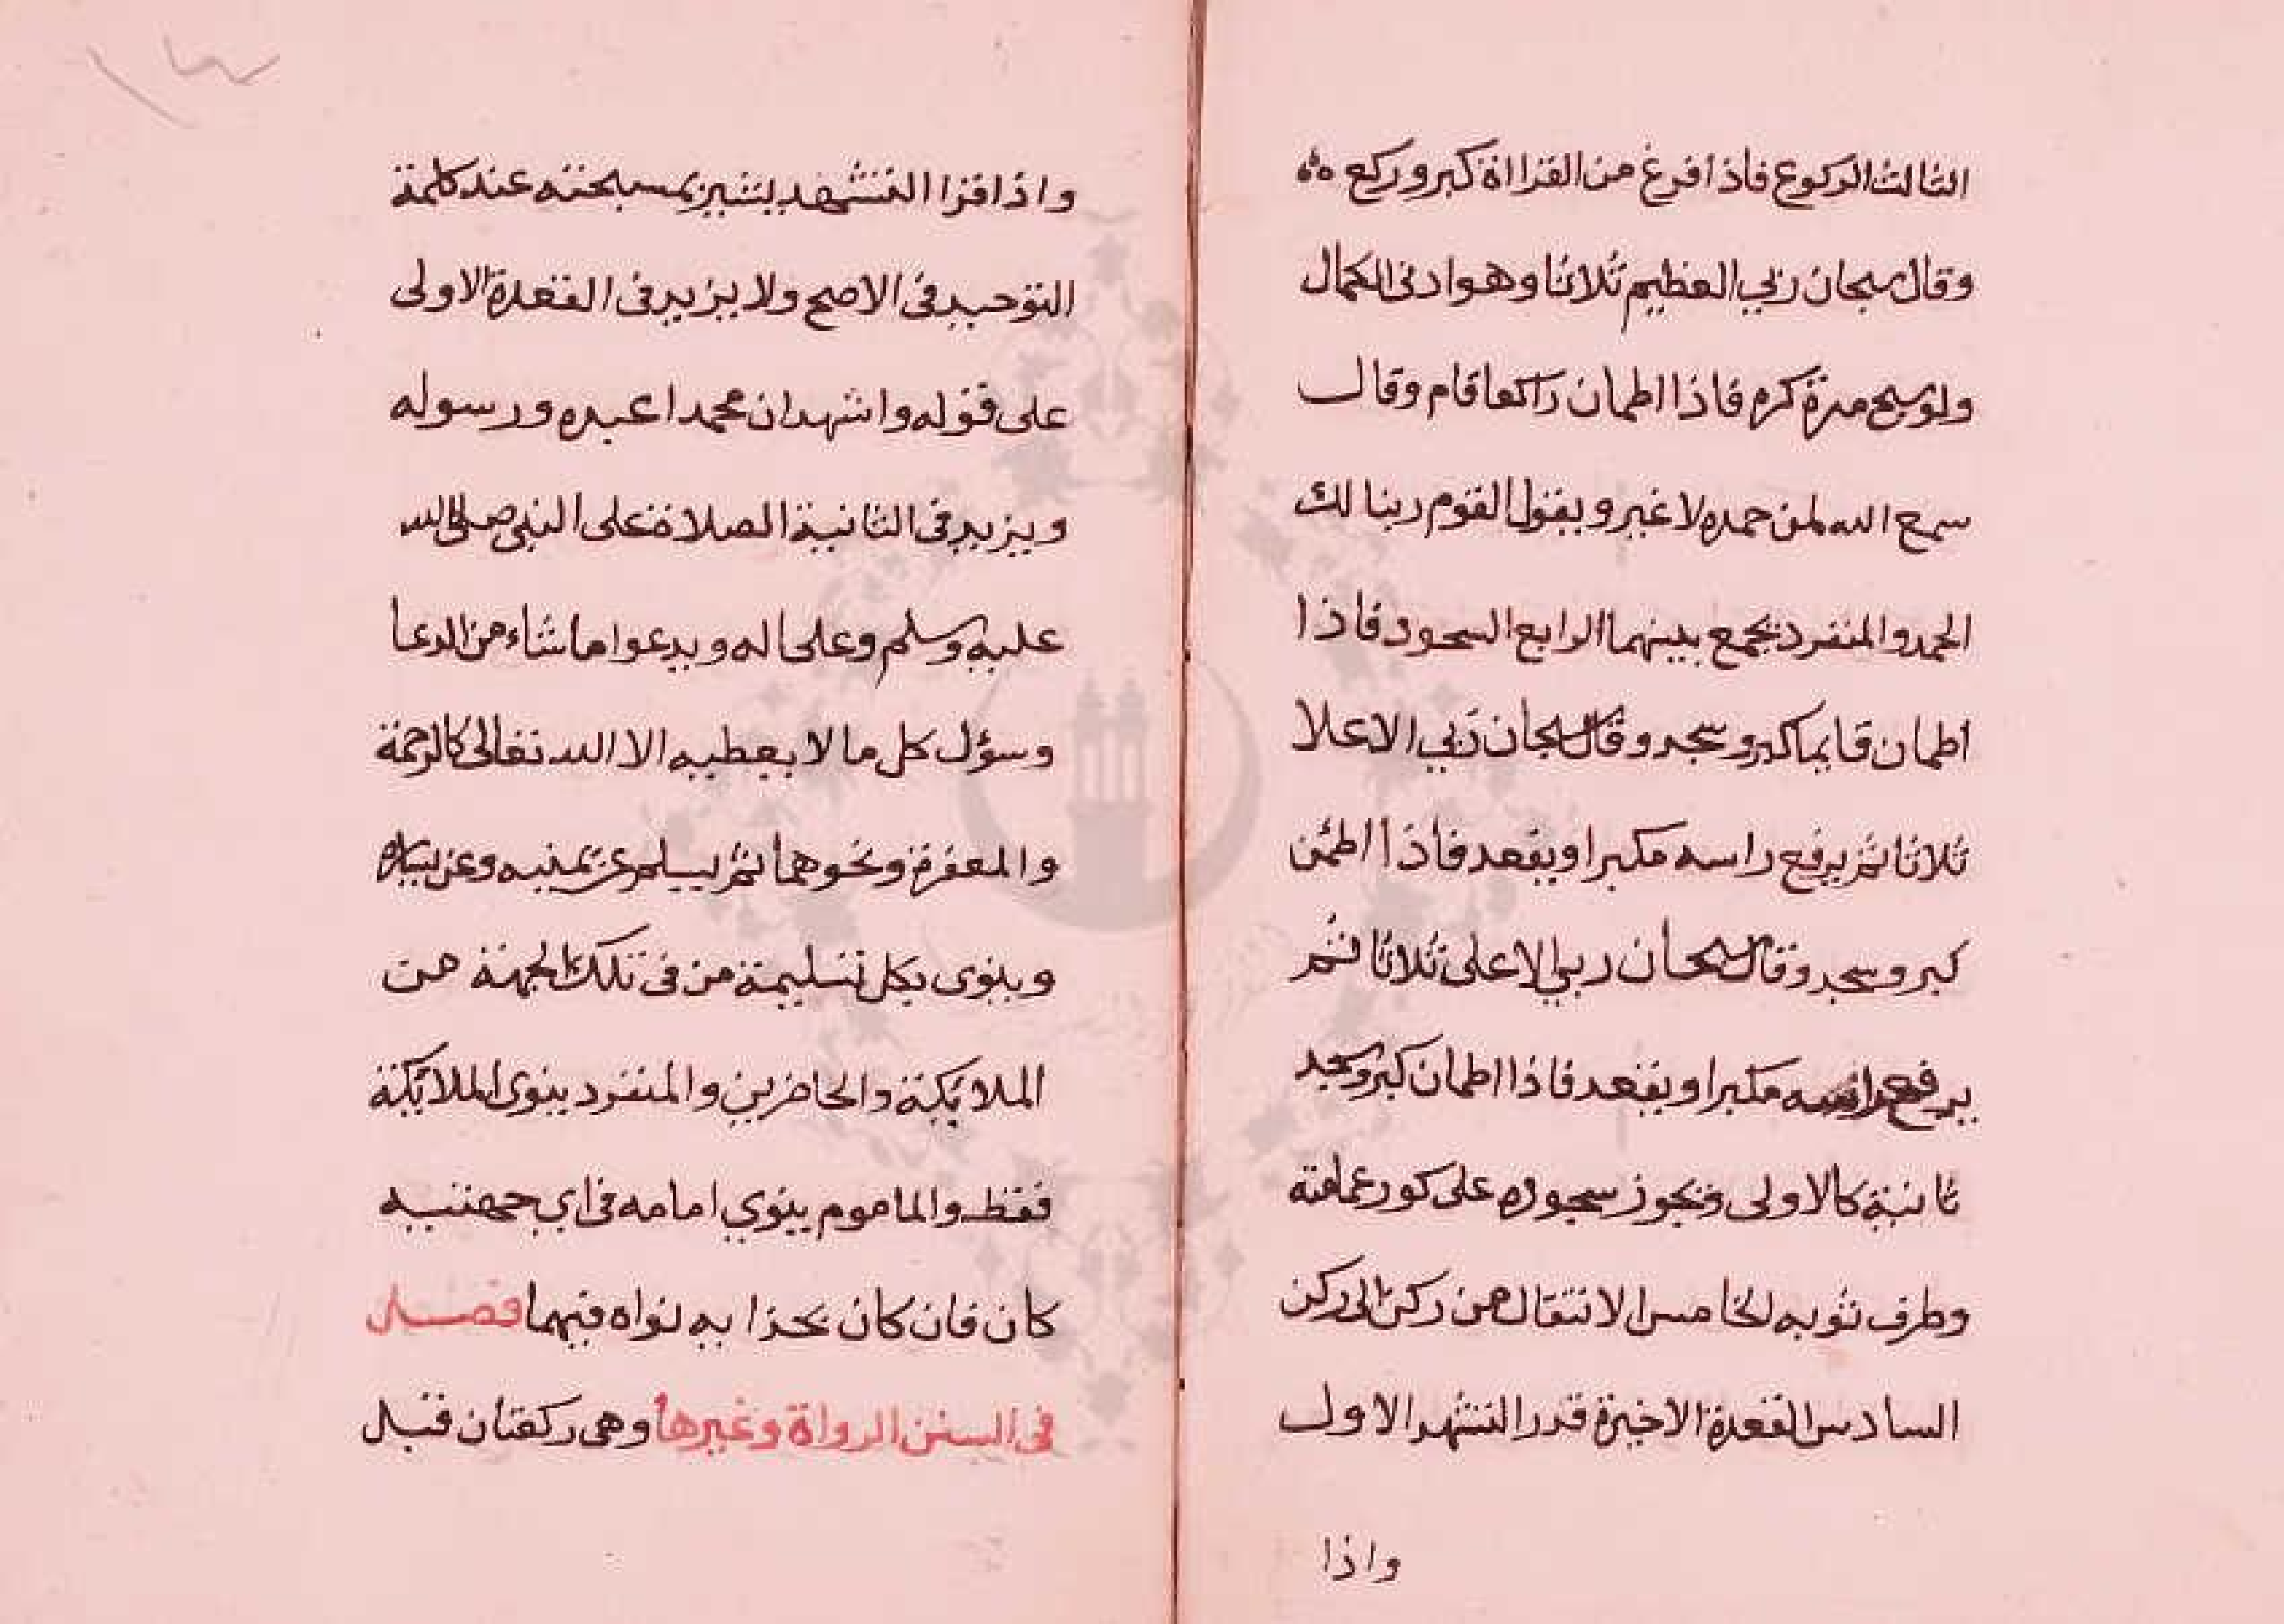 الثالث الركوع فاذا فرغ من القرااة كبر وركع
وقال سبحان ربي العظيم ثلاثا وهو ادنى الكمال
ولو سبح مرة كره فاذا اطمان راكعا قام وقال
سمع الله لمن حمده لا غير ويقول القوم ربنا لك
الحمد والمنفرد يجمع بينهما الرابع السجود فاذا
اطمان قايما كبر وسجد وقال سبحان ربي الاعلا
ثلاثا ثم يرفع راسه مكبرا ويقعد فاذا اطمئن
كبر وسجد وقال سبحان ربي الاعلى ثلاثا ثم
يرفع راسه مكبرا ويقعد فاذا اطمان كبر وسجد
ثانية كالاولى ويجوز سجوده على كور عمامته
وطرف ثوبه الخامس الانتقال من ركن الى ركن
السادس القعدة الاخيرة قدر التشهد الاول
واذا
١٣
واذا قرا التشهد يشير بمسبحته عند كلمة
التوحيد في الاصح ولا يزيد في القعدة الاولى
على قوله واشهد ان محمدا عبده ورسوله
ويزيد في الثانية الصلاة على النبي صلى الله
عليه وسلم وعلى اله ويدعوا ما شاء من الدعا
وسؤل كل ما لا يعطيه الا الله تعالى كالرحمة
والمغفرة ونحوهما ثم يسلم عن يمينه وعن يساره
وينوى بكل تسليمة من في تلك الجهة من
الملائكة والحاضرين والمنفرد ينوى الملائكة
فقط والماموم ينوي امامه في اي جهتيه
كان فان كان بحذا به نواه فيهما فصل
في السنن الرواة وغيرها وهي ركعتان قبل